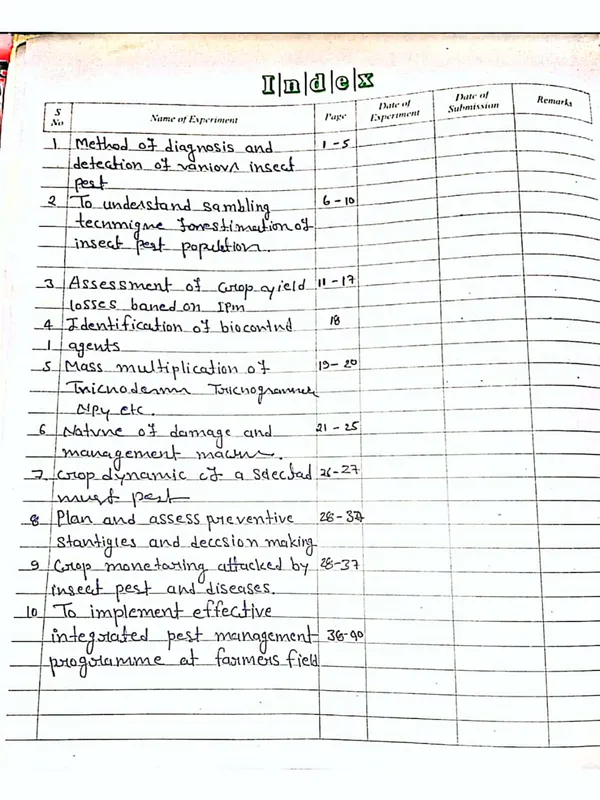 Index
S No Name of Experiment Page Date of Experiment Date of Submission Remarks
1. Method of diagnosis and 1-5
detection of various insect
pest
2. To understand sambling 6-10
tecnmigne forestimation of
insect pest popultion.
3 Assessment of crop yield 11-17
losses baned on IPM
4 Identification of biocontnd 18
1 agents
5 Mass multiplication of 19-20
Tnicnoderma Tricnogramma
NPy etc.
6 Natvne of damage and 21-25
management
7. Crop dynamic of a 26-27
must pest
8 Plan and assess preventive 28-32
stantigies and deccsion making
9 Crop monetaring attacked by 28-37
insect pest and diseases.
10 To implement effective
integrated pest management 38-40
programme at farmers field